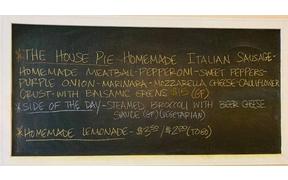 *THE HOUSE PIE-HOMEMADE ITALIAN SAUSAGE-
HOMEMADE MEATBALL-PEPPERONI-SWEET PEPPERS-
PURPLE ONION-MARINARA-MOZZARELLA CHEESE-CAULIFLOWER
CRUST-WITH BALSAMIC GREENS $15 (GF)
*SIDE OF THE DAY-STEAMED BROCCOLI WITH BEER CHEESE
SAUCE (GF)(VEGETARIAN)
*HOMEMADE LEMONADE-$3.50/$2.00(TO GO)